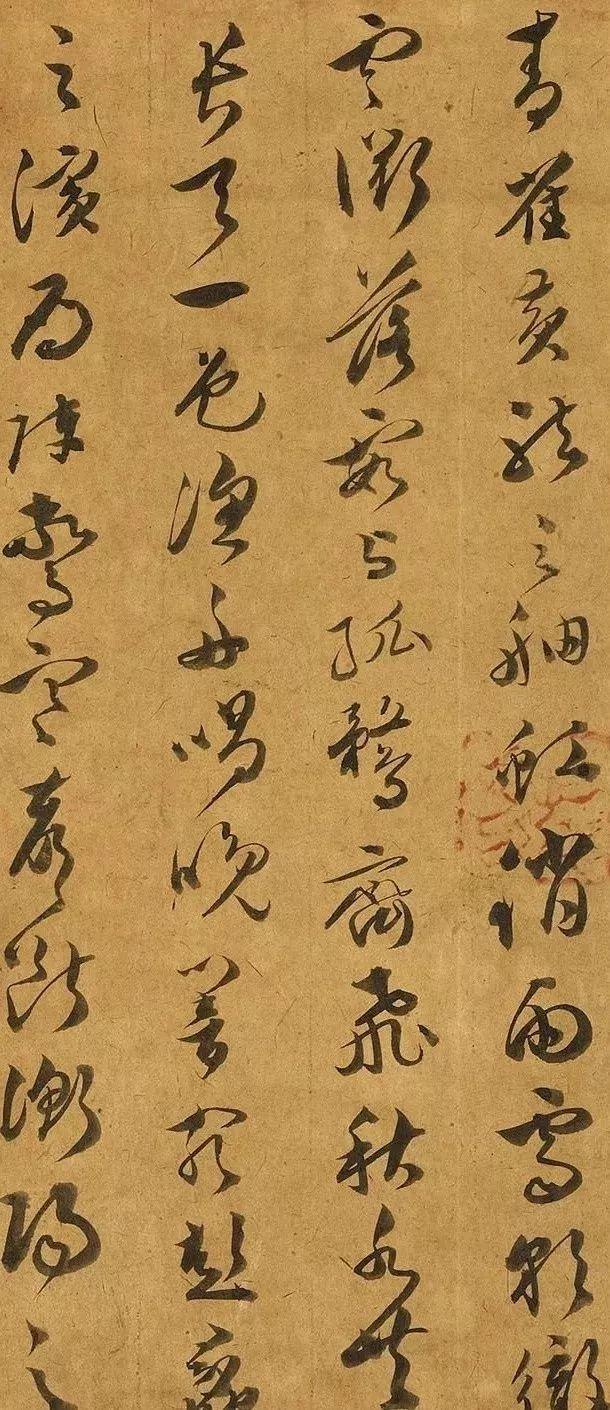 青雀黄龍之舳虹消雨霽彩徹
雲衢落霞与孤鶩齊飛秋水共
長天一色漁舟唱晚響窮彭蠡
之濱雁陣驚寒聲斷衡陽之